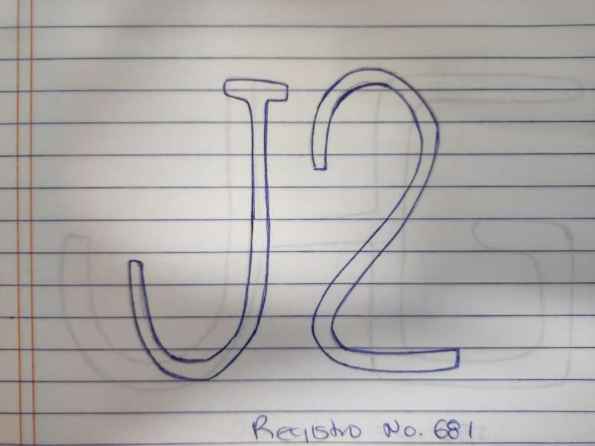 J2
Registro No. 681